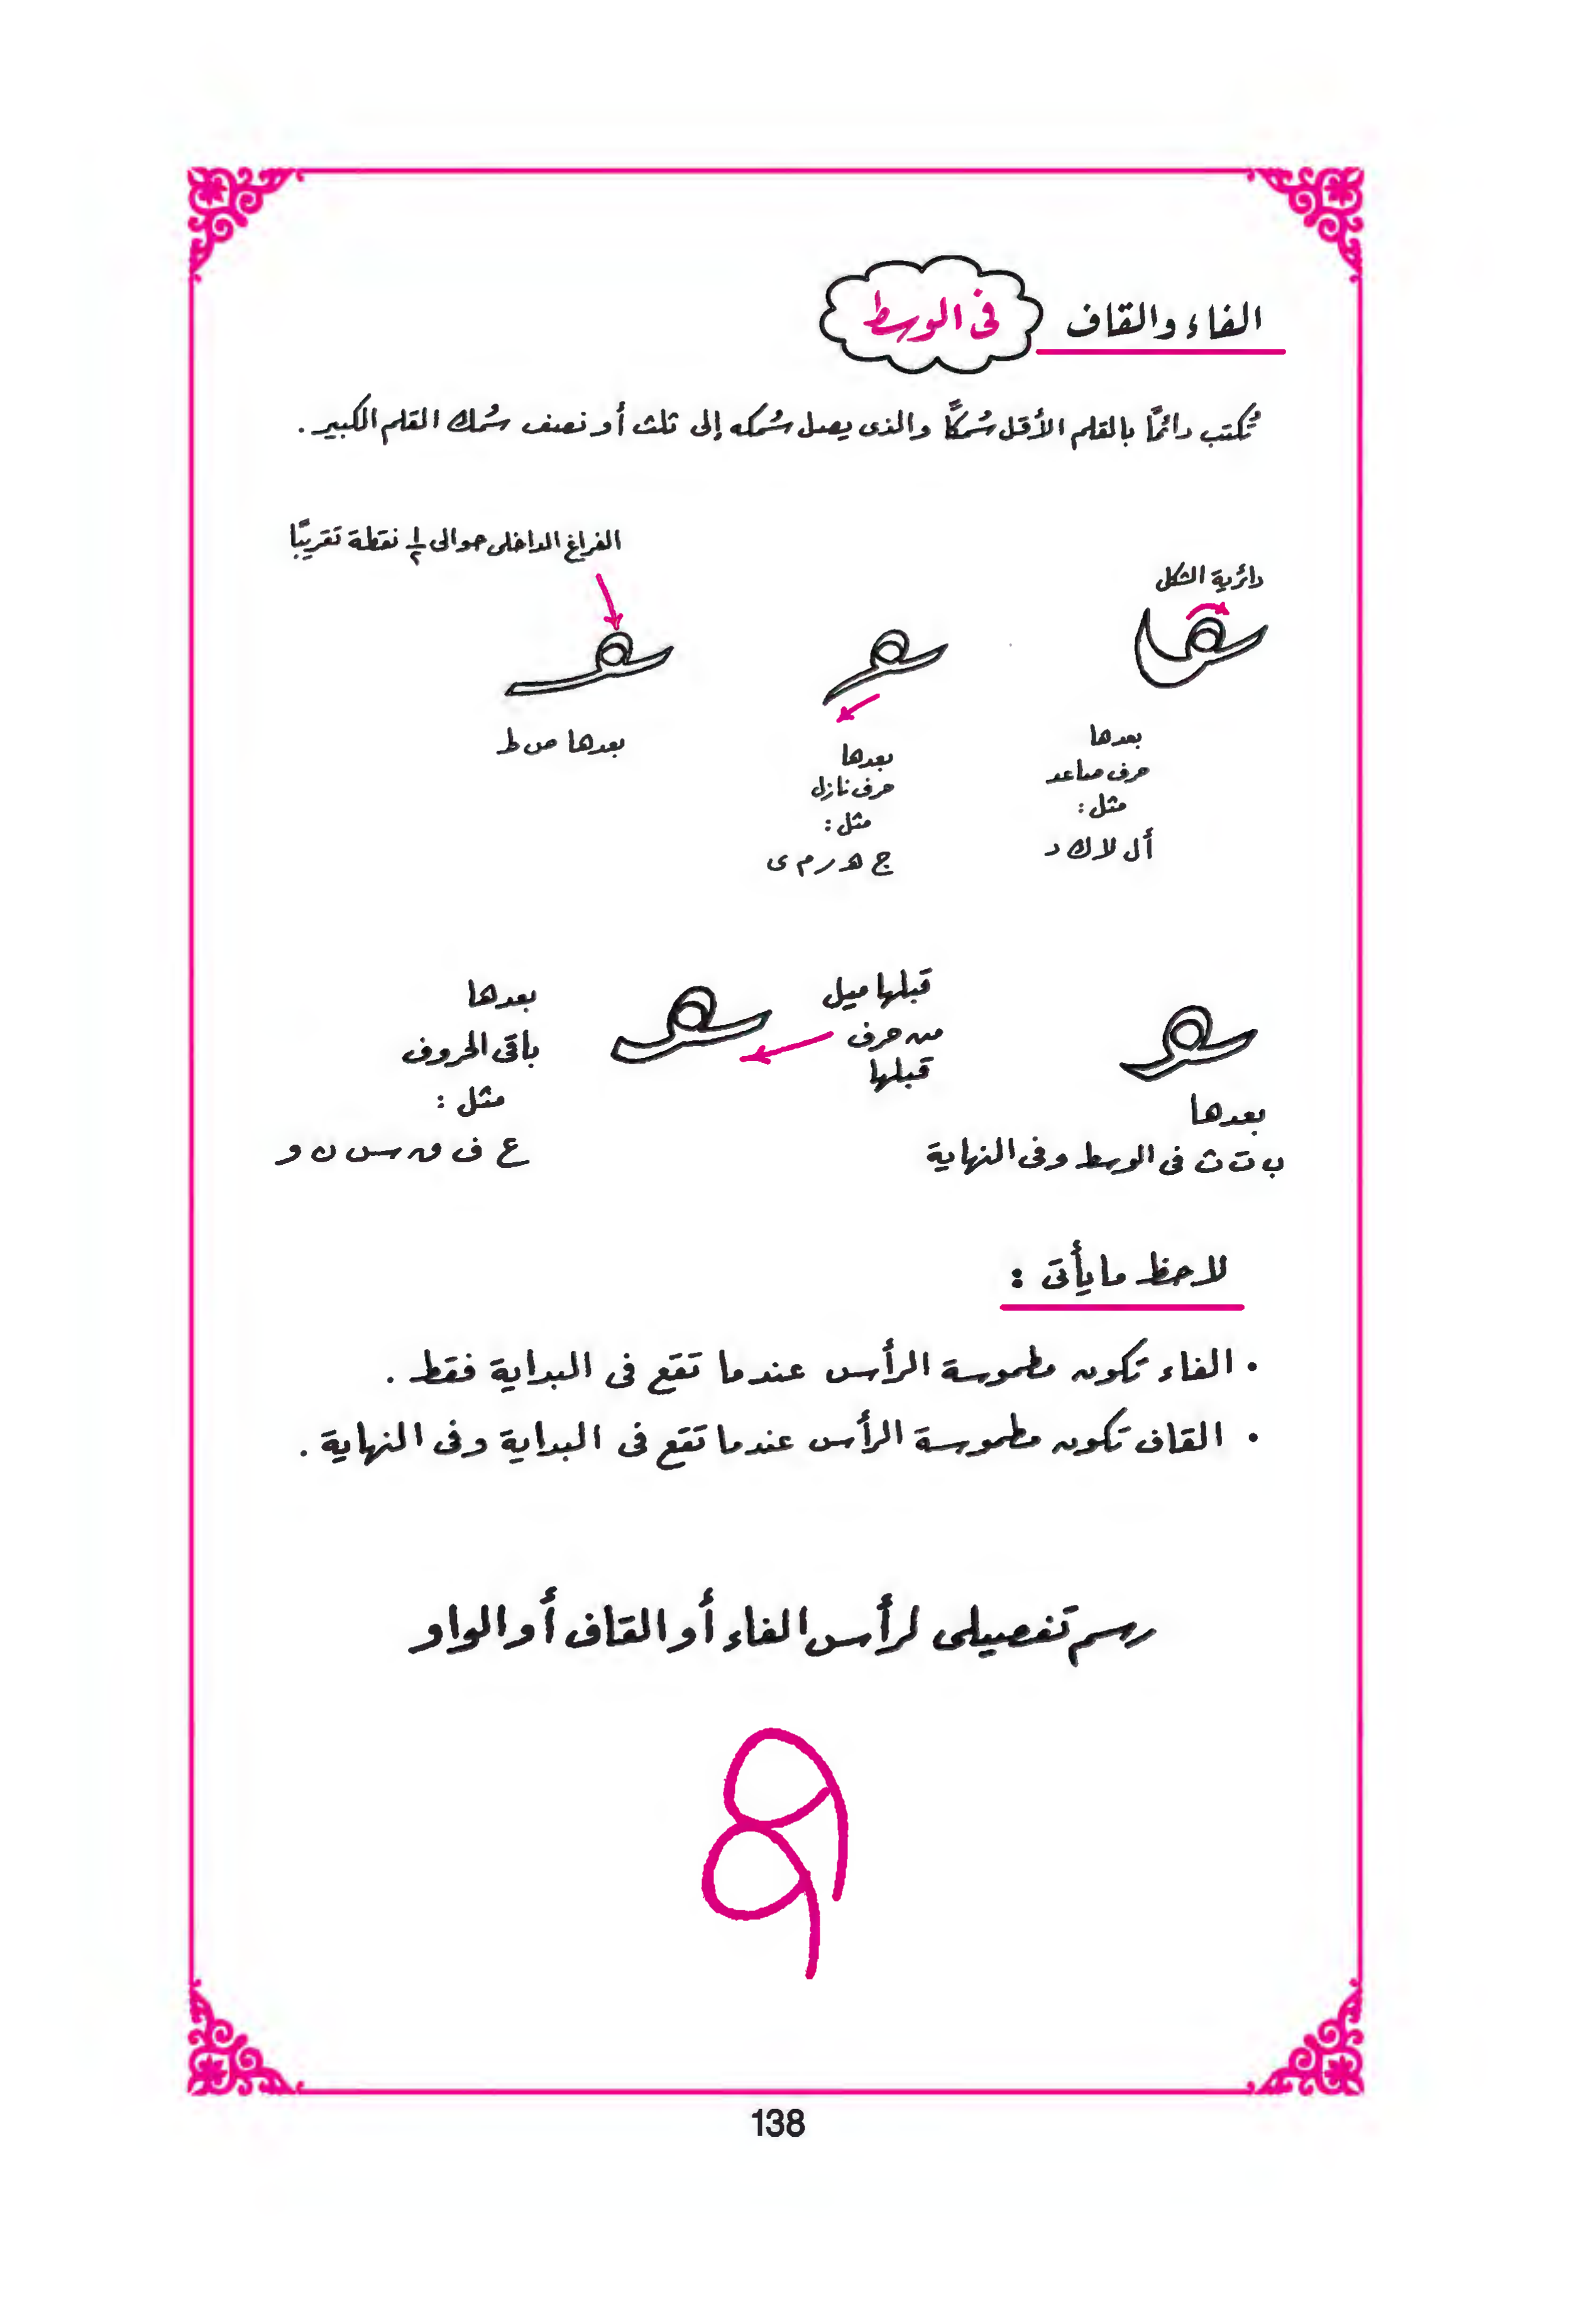 الفاء والقاف فى الوسط
تُكتب دائمًا بالقلم الأقل سُمكًا والذى يصل سُمكه إلى ثلث أو نصف سُمك القلم الكبير .
الفراغ الداخلى حوالى ١/٢ نقطة تقريبًا
دائرية الشكل
بعدها
حرف صاعد
مثل :
أ ل لا ك د
بعدها
حرف نازل
مثل :
ج هـ ر م ى
بعدها ص ط
بعدها
ب ت ث فى الوسط وفى النهاية
قبلها ميل
من حرف
قبلها
بعدها
باقى الحروف
مثل :
ع ف ق س ن و
لاحظ ما يأتى :
• الفاء تكون مطموسة الرأس عندما تقع فى البداية فقط .
• القاف تكون مطموسة الرأس عندما تقع فى البداية وفى النهاية .
رسم تفصيلى لرأس الفاء أو القاف أو الواو
138